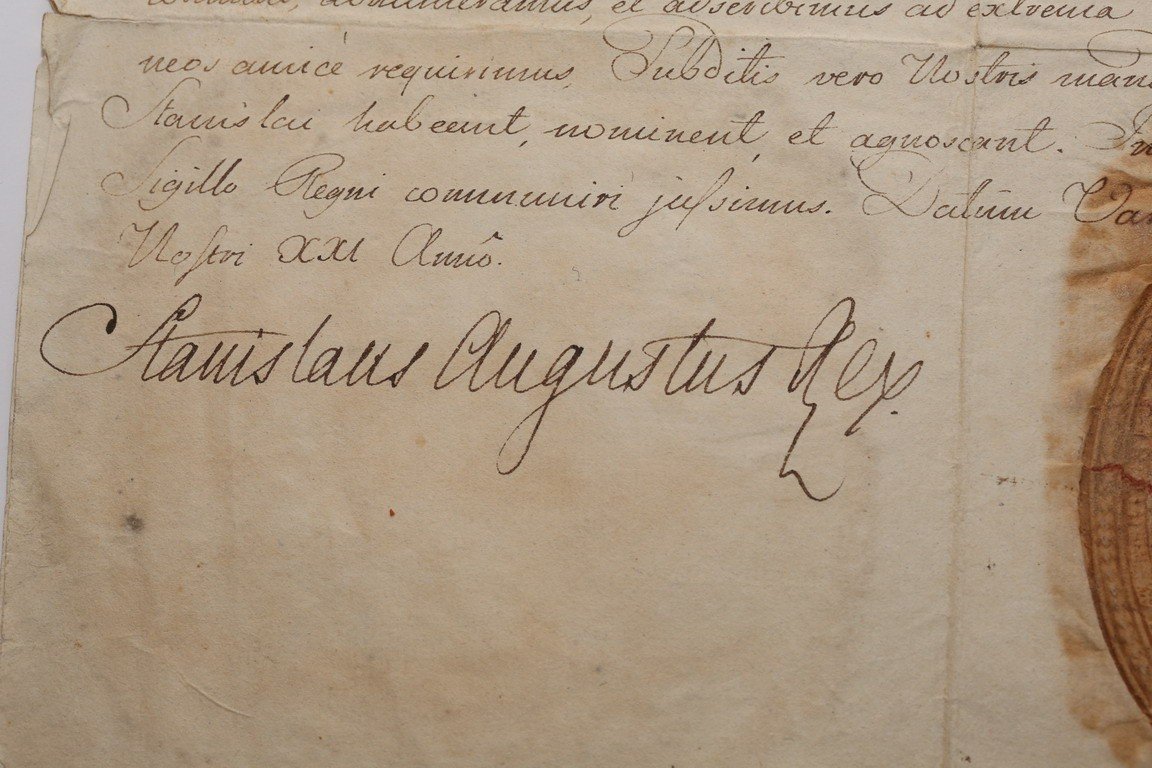 et adscribimus ad extrema
neos amicè requirimus, Subditis vero Nostris
Stanislai habeant, nominent, et agnoscant.
Sigillo Regni communiri jussimus. Datum
Nostri XXI Annô.
Stanislaus Augustus Rex.